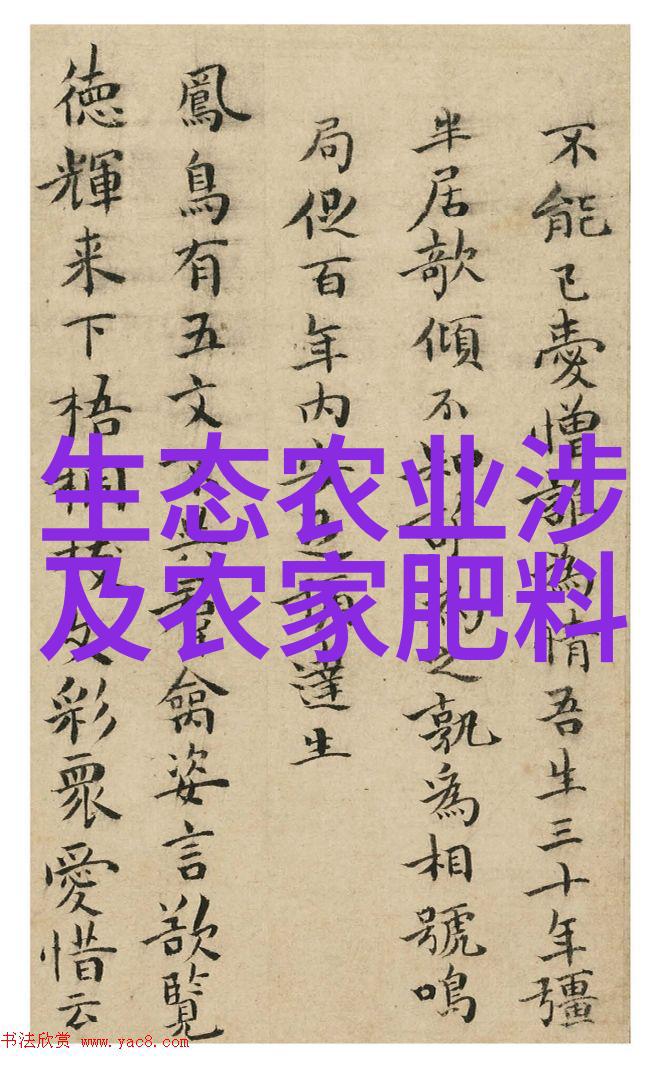 不能已憂憎誰為情吾生三十年彊
半居欹傾不知
之孰為相號鳴
局促百年內
達生
鳳鳥有五文
禽姿言欲覽
德輝来下梧桐枝
彩眾愛惜云
生态农业涉
及农家肥料
书法欣赏 www.yac8.com